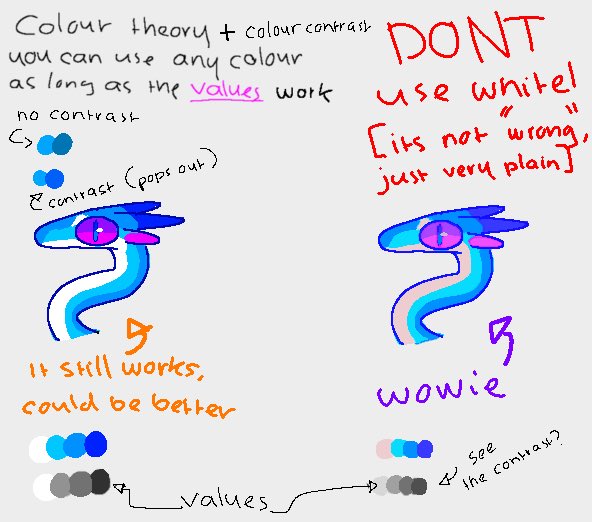 Colour theory + colour contrast
you can use any colour
as long as the values work
no contrast
contrast (pops out)
DONT
use white!
[its not "wrong",
just very plain]
it still works,
could be better
wowie
see
the contrast?
values